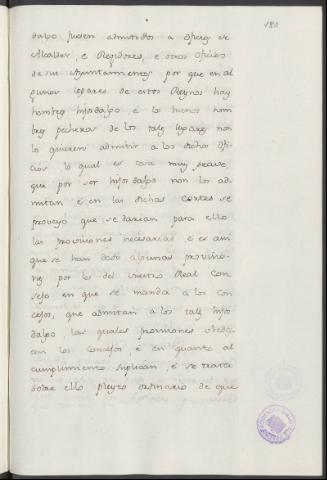 180
dalgo fuesen admitidos a oficios de
Alcaldes, e Regidores, e otros oficios
de sus Ayuntamientos, por que en al
gunos lugares de estos Reynos hay
hombres hijosdalgo, e los buenos hom
bres pecheros de los tales lugares non
lo quieren admitir a los dichos ofi
cios, lo qual es cosa muy grave,
que por ser hijosdalgo non los ad
mitan, e en las dichas cortes se
proveyó que se darian para ello
las provisiones necesarias, e es ansi
que se han dado algunas provisio
nes por los del vuestro Real Con
sejo en que se manda a los con
cejos, que admitan a los tales hijos
dalgo, las quales provisiones obede
cen los concejos, e en quanto al
cumplimiento suplican, e se trata
sobre ello pleyto ordinario de que